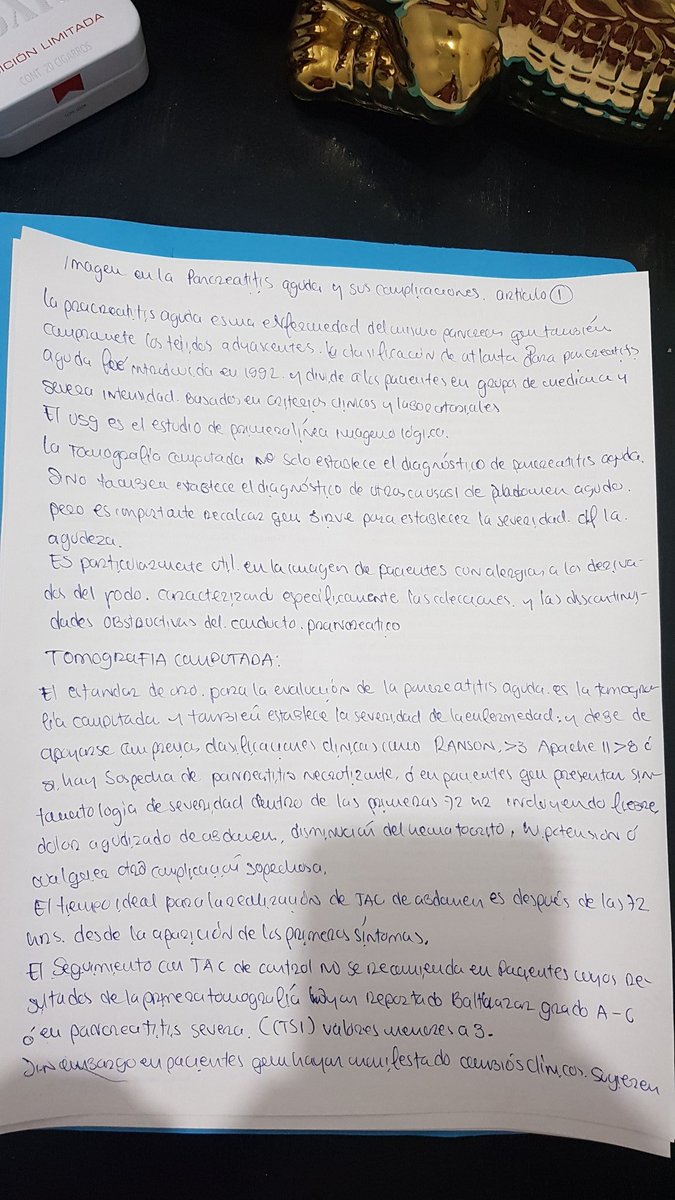 ICIÓN LIMITADA
CONT. 20 CIGARROS
Imagen en la Pancreatitis aguda y sus complicaciones. artículo ①
la pacreatitis aguda es una enfermedad del mismo pancreas que también
compromete los tejidos adyascentes. la clasificación de atlanta para pancreatitis
aguda fue introducida en 1992. y divide a los pacientes en grupos de mediana y
severa intensidad. Basados en criterios clínicos y laboratoriales
El USG es el estudio de primera línea imagenológica.
la Tomografía computada no solo establece el diagnóstico de pancreatitis aguda.
SINO también establece el diagnóstico de otras causas de abdomen agudo.
pero es importante recalcar que sirve para establecer la severidad. de la
agudeza.
Es particularmente útil en la imagen de pacientes con alergias a los deriva-
dos del yodo. caracterizand específicamente las colecciones. y las discontinui-
dades obstructivas del conducto. pancreatico
TOMOGRAFIA COMPUTADA:
El estandar de oro. para la evaluación de la pancreatitis aguda. es la tomogra-
fía computada y también establece la severidad de la enfermedad. y debe de
apoyarse con previas clasificaciones clínicas como RANSON, >3 Apache II >8 ó
si hay sospecha de pancreatitis necrotizante, ó en pacientes que presentan sin-
tomatología de severidad dentro de las primeras 72 hz incluyendo fiebre
dolor agudizado de abdomen, disminución del hematocrito, hipotensión ó
cualquier otra complicación sopechosa.
El tiempo ideal para la realización de TAC de abdomen es después de las 72
hrs. desde la aparición de los primeros síntomas.
El Seguimiento con TAC de control no se recomienda en pacientes cuyos re-
sultados de la primera tomografía hayan reportado Balthazar grado A-C
ó en pancreatitis severa. (CTSI) valores menores a 3.
Sin embargo en pacientes que hayan manifestado cambiós clínicos. sugieren